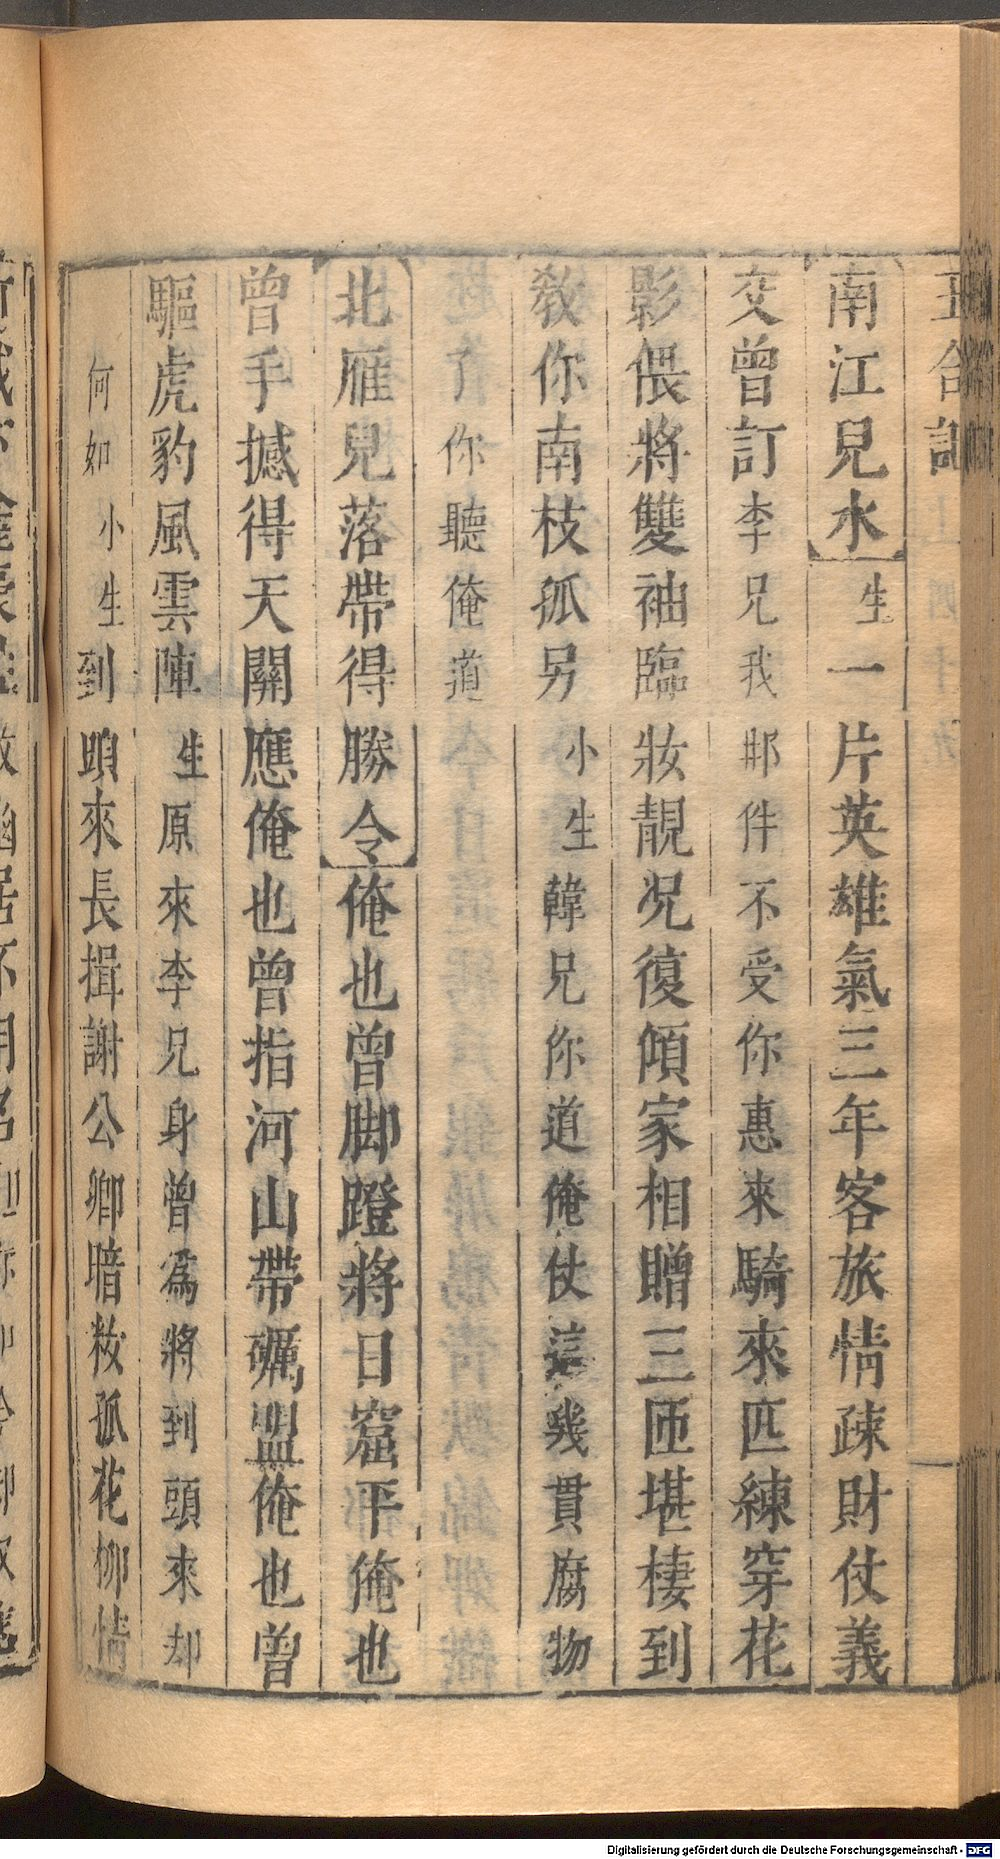 玉合記
南江兒水生一片英雄氣三年客旅情疎財仗義
交曾訂李兄我邦件不受你惠來騎來匹練穿花
影偎將雙袖臨妝靚况復傾家相贈三匝堪棲到
敎你南枝孤另小生韓兄你道俺仗這幾貫腐物
了你聽俺道
北雁兒落帶得勝令俺也曾脚蹬將日窟平俺也
曾手撼得天關應俺也曾指河山帶礪盟俺也曾
驅虎豹風雲陣生原來李兄身曾爲將到頭來却
何如小生到頭來長揖謝公卿暗粧孤花柳情
Digitalisierung gefördert durch die Deutsche Forschungsgemeinschaft - DFG